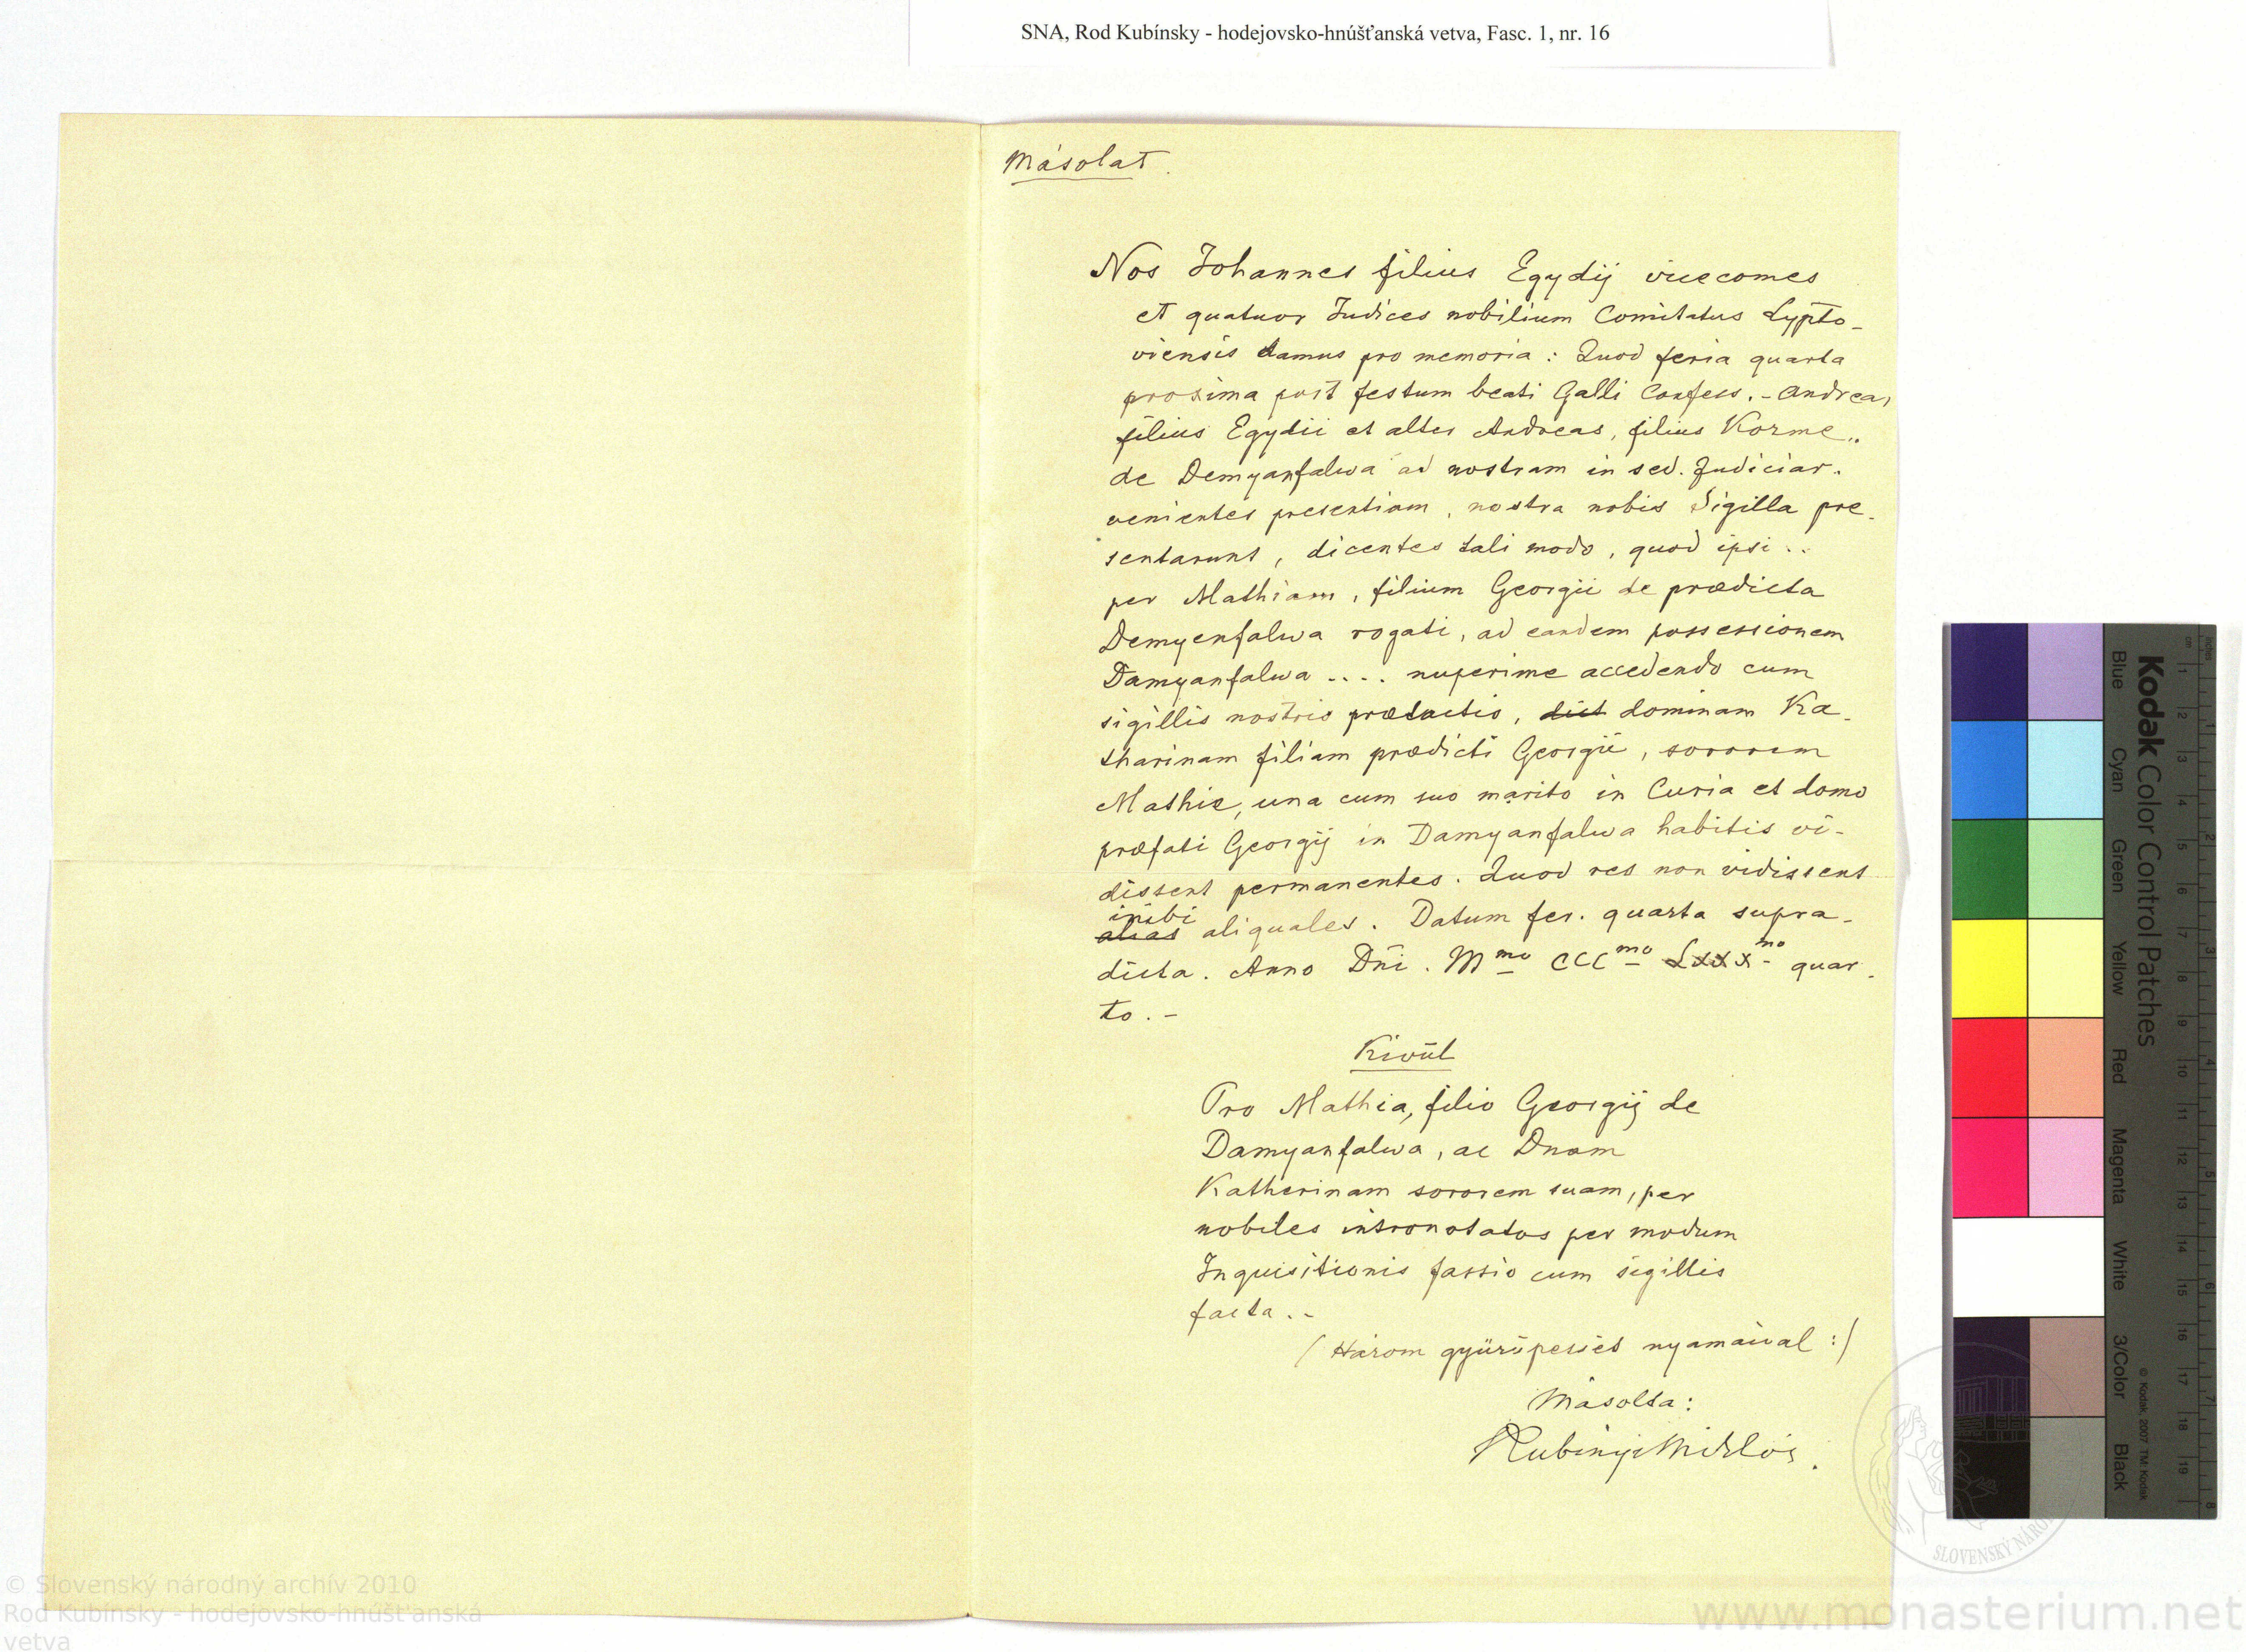 SNA, Rod Kubínsky - hodejovsko-hnúšťanská vetva, Fasc. 1, nr. 16
Másolat.
Nos Johannes filius Egydij vicecomes
et quatuor Judices nobilium Comitatus Lypto-
viensis damus pro memoria: Quod feria quarta
proxima post festum beati Galli Confess. - Andreas,
filius Egydii et alter Andreas, filius Korme..
de Demyanfalwa ad nostram in sed. Judiciar.
venientes presentiam, nostra nobis Sigilla pre-
sentarunt, dicentes tali modo, quod ipsi..
per Mathiam, filium Georgii de prædicta
Demyenfalwa rogati, ad eandem possessionem
Damyanfalwa .... nuperime accedendo cum
sigillis nostris prædictis, dominam Ka-
tharinam filiam prædicti Georgii, sororem
Mathie, una cum suo marito in Curia et domo
præfati Georgij in Damyanfalwa habitis vi-
dissent permanentes. Quod res non vidissent
inibi
alias aliquales. Datum fer. quarta supra-
dicta. Anno Dni. Mmo CCCmo Lxxxmo quar-
to. -
Kivül
Pro Mathia, filio Georgij de
Damyanfalwa, ac Dnam
Katherinam sororem suam, per
nobiles intronotatos per modum
Inquisitionis fassio cum sigillis
facta. -
(Három gyürüpecsét nyamáival :/
Másolta:
Kubinyi Miklós.
Kodak Color Control Patches
Blue
Cyan
Green
Yellow
Red
Magenta
White
3/Color
Black
© Kodak, 2007 TM: Kodak
SLOVENSKÝ NÁRO
© Slovenský národný archív 2010
Rod Kubínsky - hodejovsko-hnúšťanská
vetva
www.monasterium.net